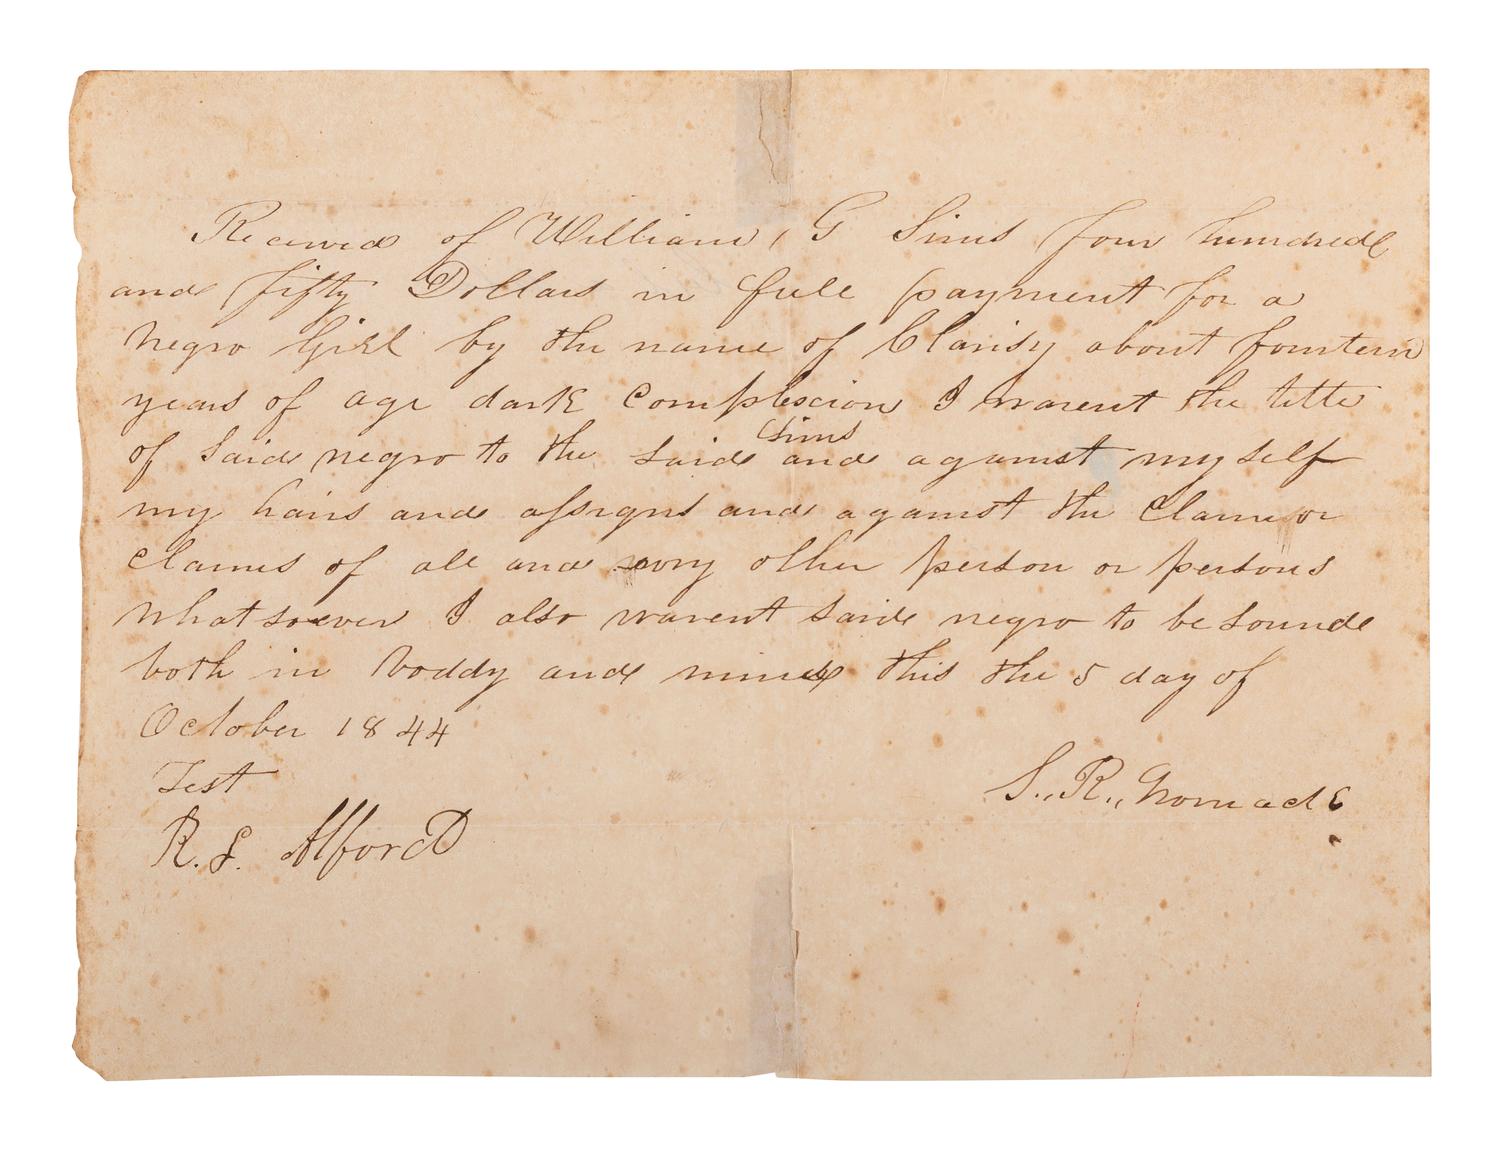 Received of William, G Sims four hundred
and fifty Dollars in full payment for a
negro Girl by the name of Clarisy about fourteen
years of age dark Complexcion I warent the title
of Said negro to the said Sims and against my self
my hairs and assigns and against the Clame or
clames of all and evry other person or persons
whatsoever I also warent said negro to be sound
both in boddy and mind this the 5 day of
October 1844
Test
S.. R..
R. L. Alford